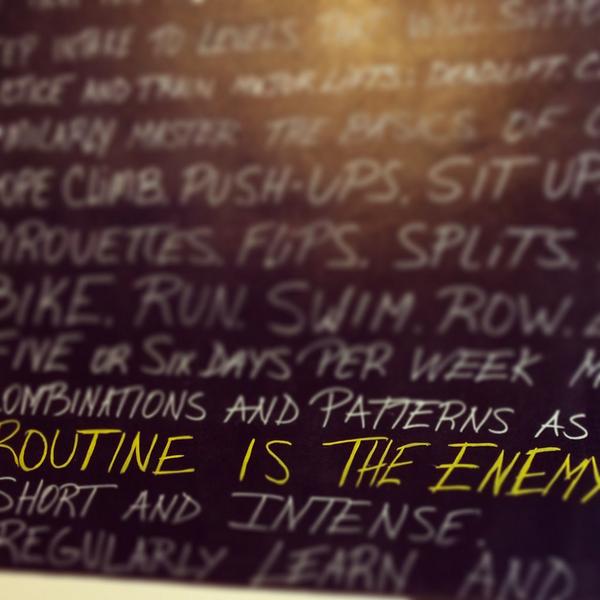 TO LEVELS THAT WILL
AND TRAIN MAJOR LIFTS: DEADLIFT. C
MILARLY MASTER THE BASICS OF
OPE CLIMB. PUSH-UPS. SIT UPS
PIROUETTES. FLIPS. SPLITS.
BIKE. RUN. SWIM. ROW.
FIVE OR SIX DAYS PER WEEK M
COMBINATIONS AND PATTERNS AS
ROUTINE IS THE ENEMY
SHORT AND INTENSE.
REGULARLY LEARN AND